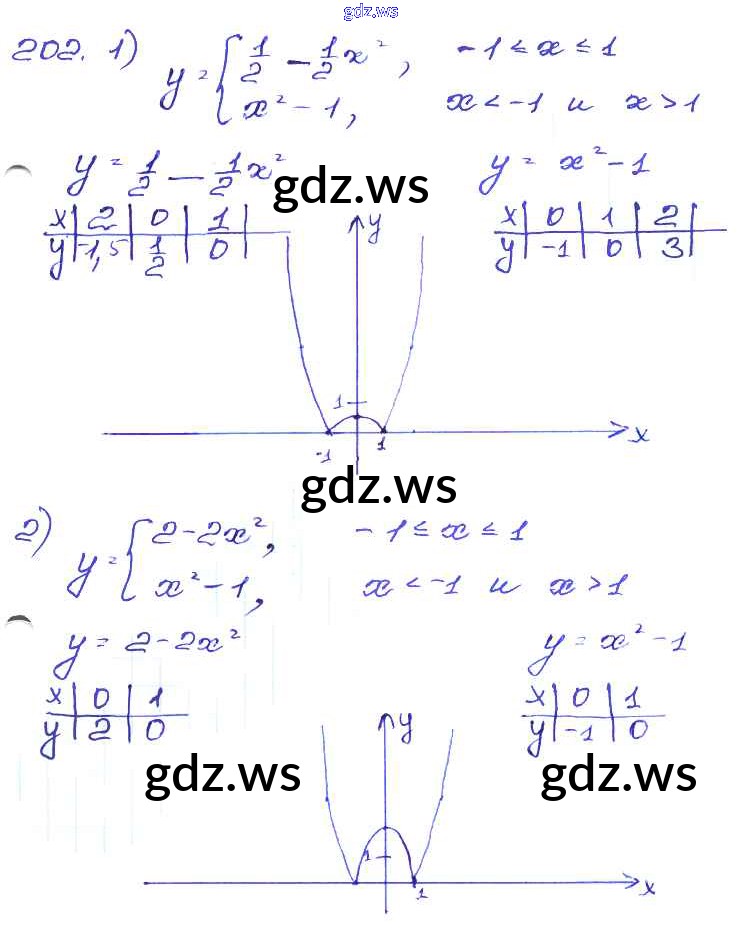 gdz.ws
202. 1) y = { 1/2 - 1/2 x², -1 ≤ x ≤ 1
x² - 1, x < -1 и x > 1
y = 1/2 - 1/2 x² y = x² - 1
gdz.ws
x | 2 | 0 | 1 | x | 0 | 1 | 2 |
y | -1,5 | 1/2 | 0 | y | -1 | 0 | 3 |
y
1
x
-1 1
gdz.ws
2) y = { 2 - 2x², -1 ≤ x ≤ 1
x² - 1, x < -1 и x > 1
y = 2 - 2x² y = x² - 1
x | 0 | 1 x | 0 | 1
y | 2 | 0 y | -1 | 0
y
gdz.ws gdz.ws
1
1 x